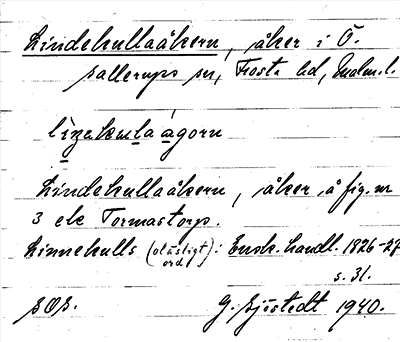 Lindekullaåkern, åker i Ö.
Sallerups sn, Frosta hd, Malm. l.
Lindekullaåkern, åker å fig. nr
3 ek Tormastorp.
Linnekulls (oläsligt ord): Ensk. handl. 1826-27
s. 31.
SOS. G. Sjöstedt 1940.